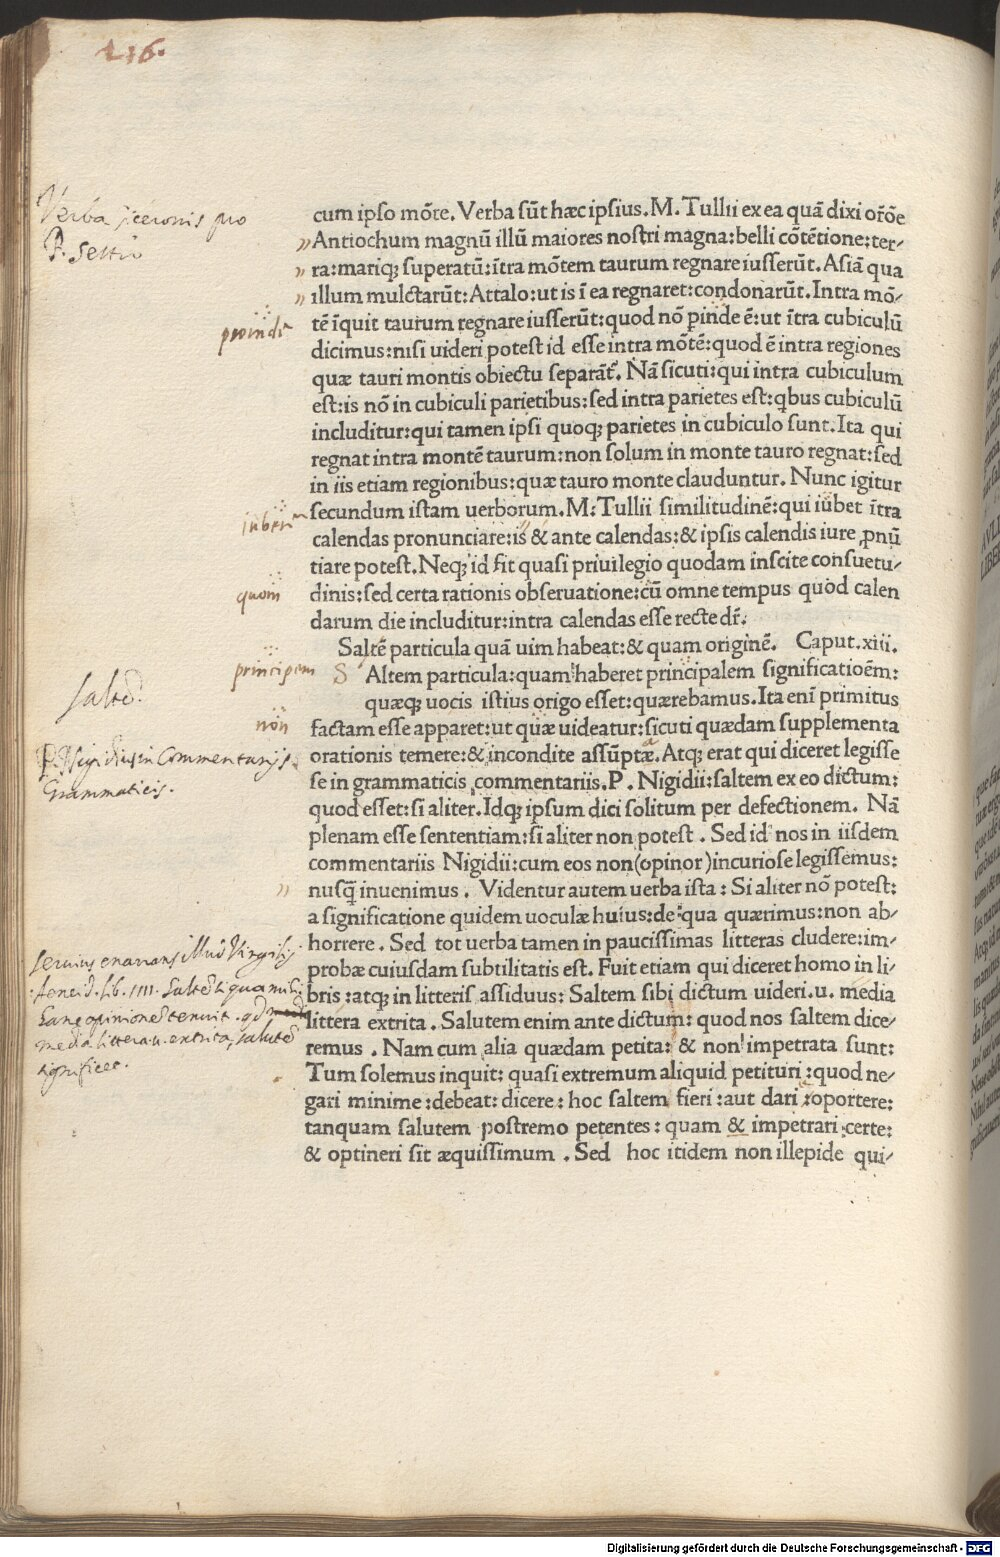 216.
Verba ciceronis pro
P. Sextio
cum ipso mõte. Verba sũt hæc ipsius. M. Tullii ex ea quã dixi or̃õe
Antiochum magnũ illũ maiores nostri magna: belli cõtẽtione: ter⸗
ra: mariq; superatũ: ĩtra mõtem taurum regnare iusserũt. Asiã qua
illum mulctarũt: Attalo: ut is ĩ ea regnaret: condonarũt. Intra mõ⸗
tẽ ĩquit taurum regnare iusserũt: quod nõ ꝑinde ẽ: ut ĩtra cubiculũ
proinde
dicimus: nisi uideri potest id esse intra mõtẽ: quod ẽ intra regiones
quæ tauri montis obiectu separãt̃. Nã sicuti: qui intra cubiculum
est: is nõ in cubiculi parietibus: sed intra parietes est: qbus cubiculũ
includitur: qui tamen ipsi quoq; parietes in cubiculo sunt. Ita qui
regnat intra montẽ taurum: non solum in monte tauro regnat: sed
in iis etiam regionibus: quæ tauro monte clauduntur. Nunc igitur
secundum istam uerborum. M. Tullii similitudinẽ: qui iubet ĩtra
calendas pronunciare: is & ante calendas: & ipsis calendis iure ꝓnũ
tiare potest. Neq; id fit quasi priuilegio quodam inscite consuetu⸗
dinis: sed certa rationis obseruatione: cũ omne tempus quod calen
quom
darum die includitur: intra calendas esse recte dr̃.
Saltẽ particula quã uim habeat: & quam originẽ. Caput. xiii.
principem
S Altem particula: quam haberet principalem significatioẽm:
saltẽ.
quæq; uocis istius origo esset: quærebamus. Ita enĩ primitus
factam esse apparet: ut quæ uideatur: sicuti quædam supplementa
non
orationis temere: & incondite assũptæ. Atq; erat qui diceret legisse
P. Nigidius in Commentarijs
Grammaticis.
se in grammaticis commentariis. P. Nigidii: saltem ex eo dictum:
quod esset: si aliter. Idq; ipsum dici solitum per defectionem. Nã
plenam esse sententiam: si aliter non potest. Sed id nos in iisdem
commentariis Nigidii: cum eos non (opinor) incuriose legissemus:
nusq̃ inuenimus. Videntur autem uerba ista: Si aliter nõ potest:
a significatione quidem uoculæ huius: de qua quærimus: non ab⸗
horrere. Sed tot uerba tamen in paucissimas litteras cludere: im⸗
probæ cuiusdam subtilitatis est. Fuit etiam qui diceret homo in li⸗
bris: atq; in litteris assiduus: Saltem sibi dictum uideri. u. media
littera extrita. Salutem enim ante dictum: quod nos saltem dice⸗
Seruius enarrans illud Virgilij
Aeneid. lib. IIII. Saltẽ si qua mihi
hanc opinionẽ tenuit. qd
media littera .u. extrita, salutẽ
significet.
remus. Nam cum alia quædam petita: & non impetrata sunt:
Tum solemus inquit: quasi extremum aliquid petituri: quod ne⸗
gari minime: debeat: dicere: hoc saltem fieri: aut dari: oportere:
tanquam salutem postremo petentes: quam & impetrari: certe:
& optineri sit æquissimum. Sed hoc itidem non illepide qui⸗
Digitalisierung gefördert durch die Deutsche Forschungsgemeinschaft - DFG